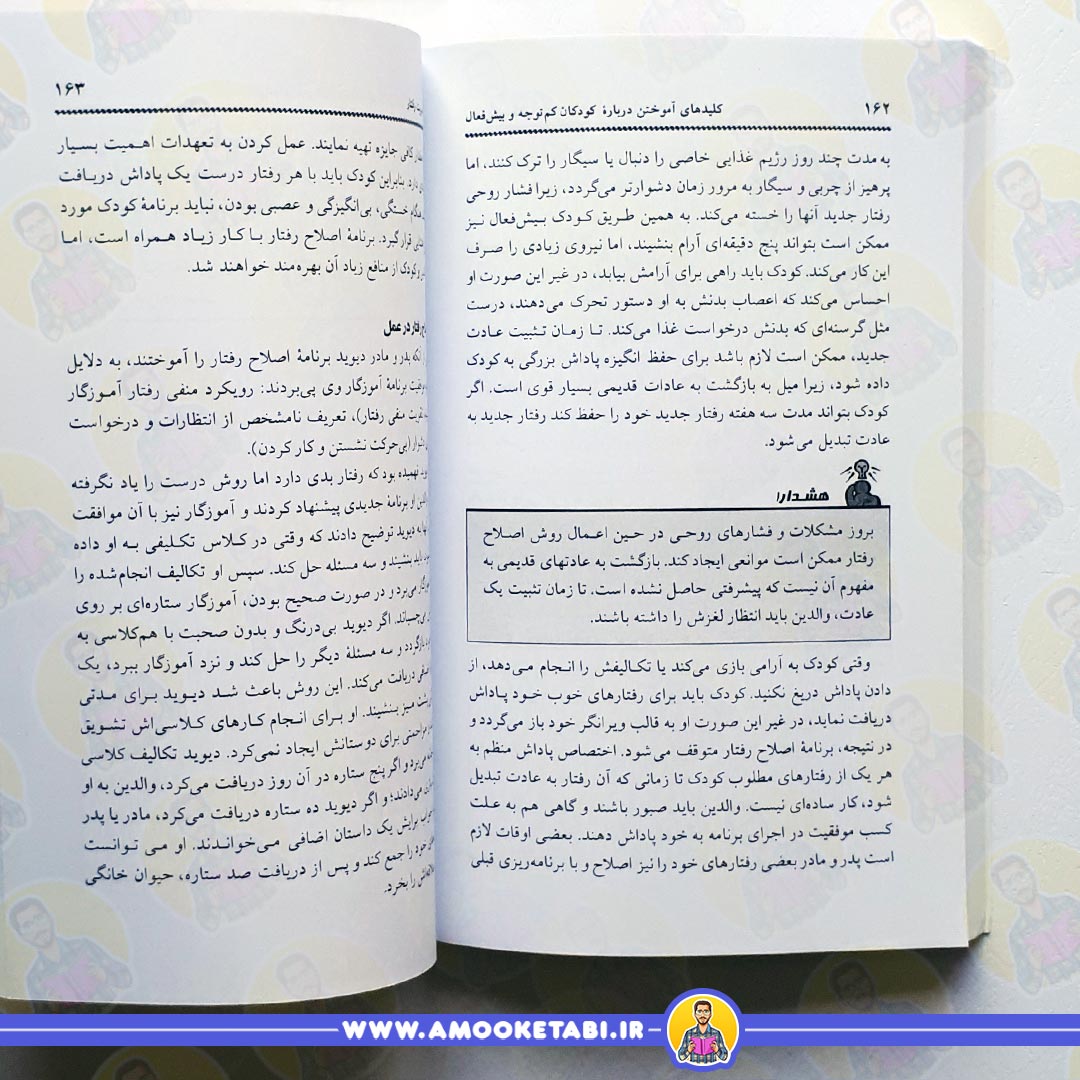 ۱۶۲
کلیدهای آموختن دربارهٔ کودکان کم‌توجه و بیش‌فعال
به مدت چند روز رژیم غذایی خاصی را دنبال یا سیگار را ترک کنند، اما
پرهیز از چربی و سیگار به مرور زمان دشوارتر می‌گردد، زیرا فشار روحی
رفتار جدید آنها را خسته می‌کند. به همین طریق کودک بیش‌فعال نیز
ممکن است بتواند پنج دقیقه‌ای آرام بنشیند، اما نیروی زیادی را صرف
این کار می‌کند. کودک باید راهی برای آرامش بیابد، در غیر این صورت او
احساس می‌کند که اعصاب بدنش به او دستور تحرک می‌دهند، درست
مثل گرسنه‌ای که بدنش درخواست غذا می‌کند. تا زمان تثبیت عادت
جدید، ممکن است لازم باشد برای حفظ انگیزه پاداش بزرگی به کودک
داده شود، زیرا میل به بازگشت به عادات قدیمی بسیار قوی است. اگر
کودک بتواند مدت سه هفته رفتار جدید خود را حفظ کند رفتار جدید به
عادت تبدیل می‌شود.
هشدار!
بروز مشکلات و فشارهای روحی در حین اعمال روش اصلاح
رفتار ممکن است موانعی ایجاد کند. بازگشت به عادتهای قدیمی به
مفهوم آن نیست که پیشرفتی حاصل نشده است. تا زمان تثبیت یک
عادت، والدین باید انتظار لغزش را داشته باشند.
وقتی کودک به آرامی بازی می‌کند یا تکالیفش را انجام می‌دهد، از
دادن پاداش دریغ نکنید. کودک باید برای رفتارهای خوب خود پاداش
دریافت نماید، در غیر این صورت او به قالب ویرانگر خود باز می‌گردد و
در نتیجه، برنامهٔ اصلاح رفتار متوقف می‌شود. اختصاص پاداش منظم به
هر یک از رفتارهای مطلوب کودک تا زمانی که آن رفتار به عادت تبدیل
شود، کار ساده‌ای نیست. والدین باید صبور باشند و گاهی هم به علت
کسب موفقیت در اجرای برنامه به خود پاداش دهند. بعضی اوقات لازم
است پدر و مادر بعضی رفتارهای خود را نیز اصلاح و با برنامه‌ریزی قبلی
۱۶۳
کافی جایزه تهیه نمایند. عمل کردن به تعهدات اهمیت بسیار
دارد. بنابراین کودک باید با هر رفتار درست یک پاداش دریافت
خستگی، بی‌انگیزگی و عصبی بودن، نباید برنامهٔ کودک مورد
قرار گیرد. برنامهٔ اصلاح رفتار با کار زیاد همراه است، اما
و کودک از منافع زیاد آن بهره‌مند خواهند شد.
رفتار در عمل
پدر و مادر دیوید برنامهٔ اصلاح رفتار را آموختند، به دلایل
برنامهٔ آموزگار وی پی‌بردند: رویکرد منفی رفتار آموزگار
منفی رفتار)، تعریف نامشخص از انتظارات و درخواست
(بی‌حرکت نشستن و کار کردن).
فهمیده بود که رفتار بدی دارد اما روش درست را یاد نگرفته
او برنامهٔ جدیدی پیشنهاد کردند و آموزگار نیز با آن موافقت
به دیوید توضیح دادند که وقتی در کلاس تکلیفی به او داده
باید بنشیند و سه مسئله حل کند. سپس او تکالیف انجام‌شده را
می‌برد و در صورت صحیح بودن، آموزگار ستاره‌ای بر روی
می‌چسباند. اگر دیوید بی‌درنگ و بدون صحبت با هم‌کلاسی به
بازگردد و سه مسئلهٔ دیگر را حل کند و نزد آموزگار ببرد، یک
دریافت می‌کند. این روش باعث شد دیوید برای مدتی
میز بنشیند. او برای انجام کارهای کلاسی‌اش تشویق
مزاحمتی برای دوستانش ایجاد نمی‌کرد. دیوید تکالیف کلاسی
می‌برد و اگر پنج ستاره در آن روز دریافت می‌کرد، والدین به او
می‌دادند؛ و اگر دیوید ده ستاره دریافت می‌کرد، مادر یا پدر
برایش یک داستان اضافی می‌خواندند. او می توانست
خود را جمع کند و پس از دریافت صد ستاره، حیوان خانگی
را بخرد.
WWW.AMOOKETABI.IR